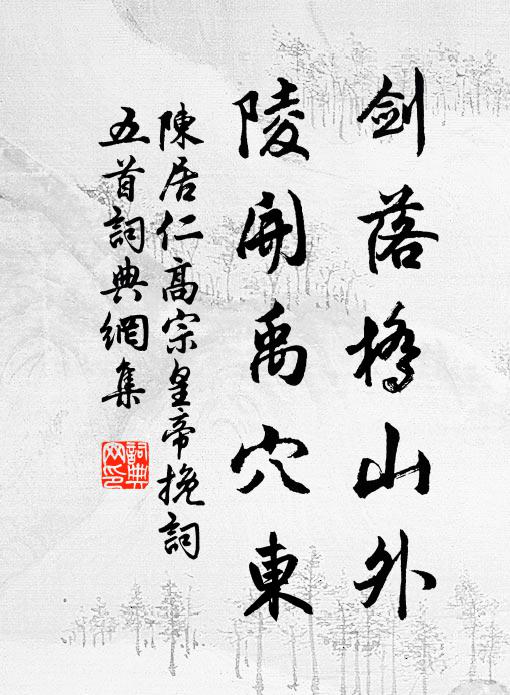 剑落桥山外
陵开禹穴東
陳居仁高宗皇帝挽詞
五首詞典網集
詞典网印